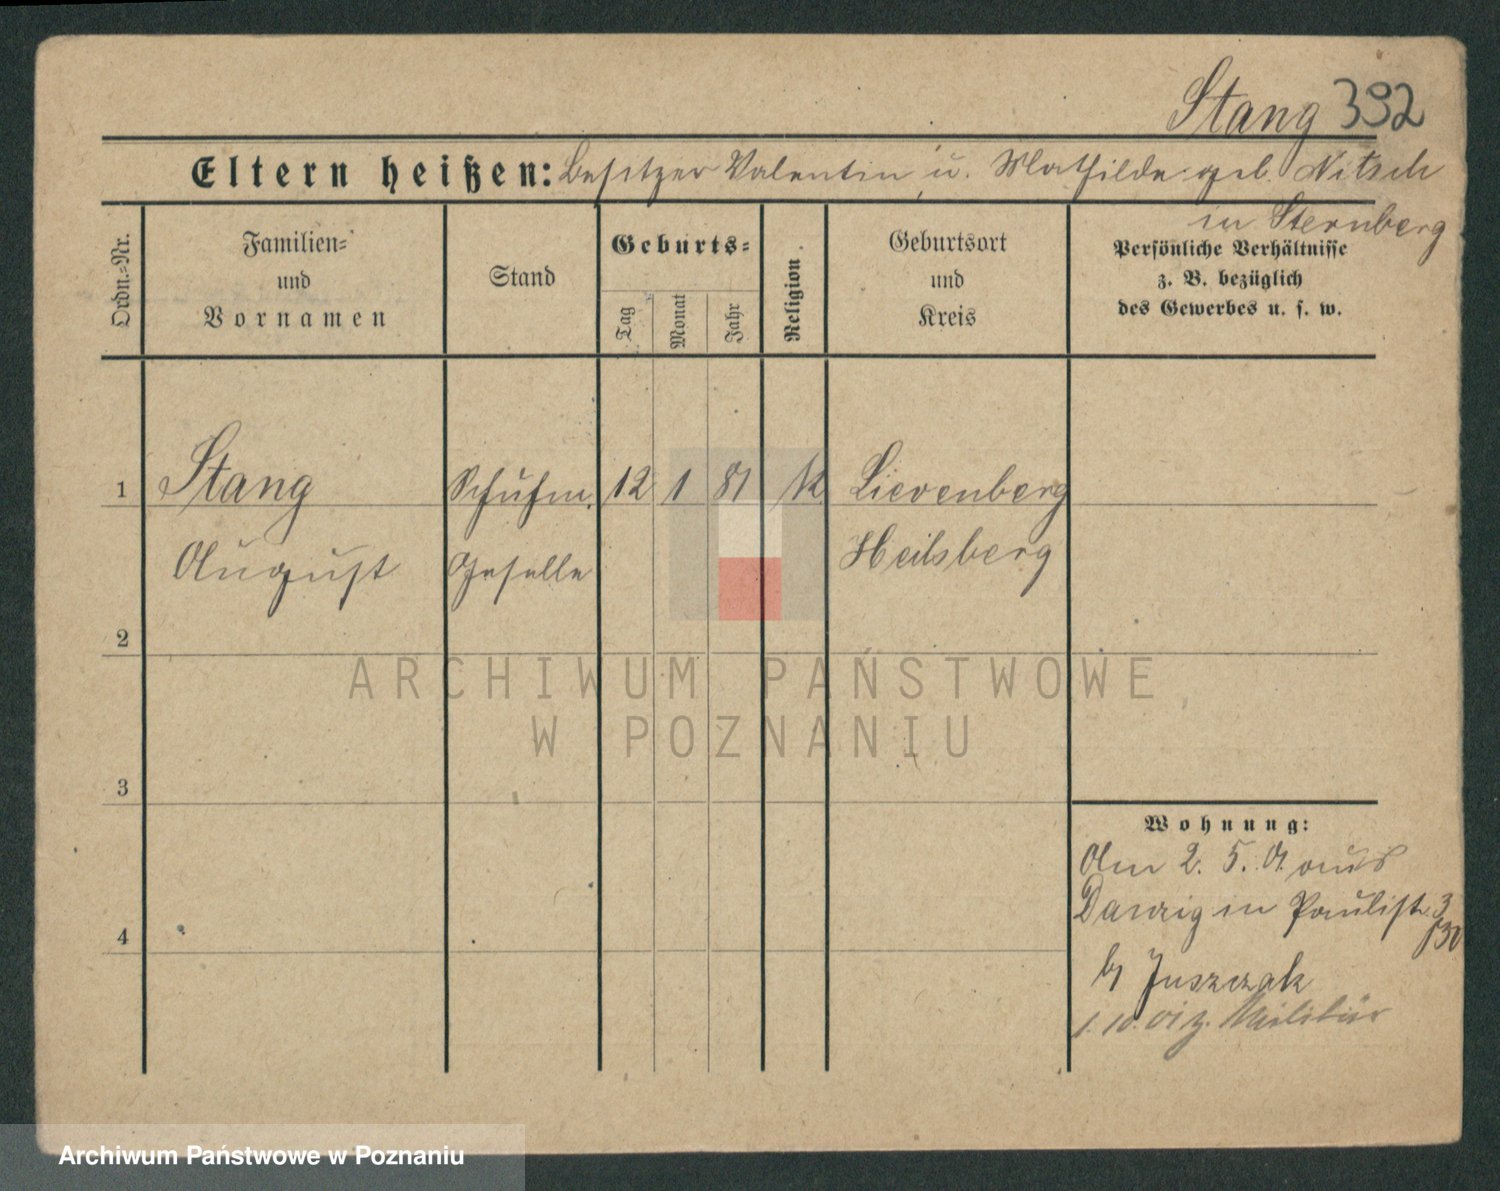 Stang 392
Eltern heißen: Besitzer Valentin u. Mathilde geb. Nitsch
in Sternberg
Ordn.-Nr.
Familien-
und
Vornamen
Stand
Geburts-
Tag
Monat
Jahr
Religion.
Geburtsort
und
Kreis
Persönliche Verhältnisse
z. B. bezüglich
des Gewerbes u. s. w.
1 Stang Schuhm. 12 1 81 k Lievenberg
August Geselle Heilsberg
2
3
4
Wohnung:
Am 2. 5. 01 aus
Danzig in Paulistr. 3
b/ Juszczak
1. 10. 01 z. Militär
ARCHIWUM PAŃSTWOWE
W POZNANIU
Archiwum Państwowe w Poznaniu